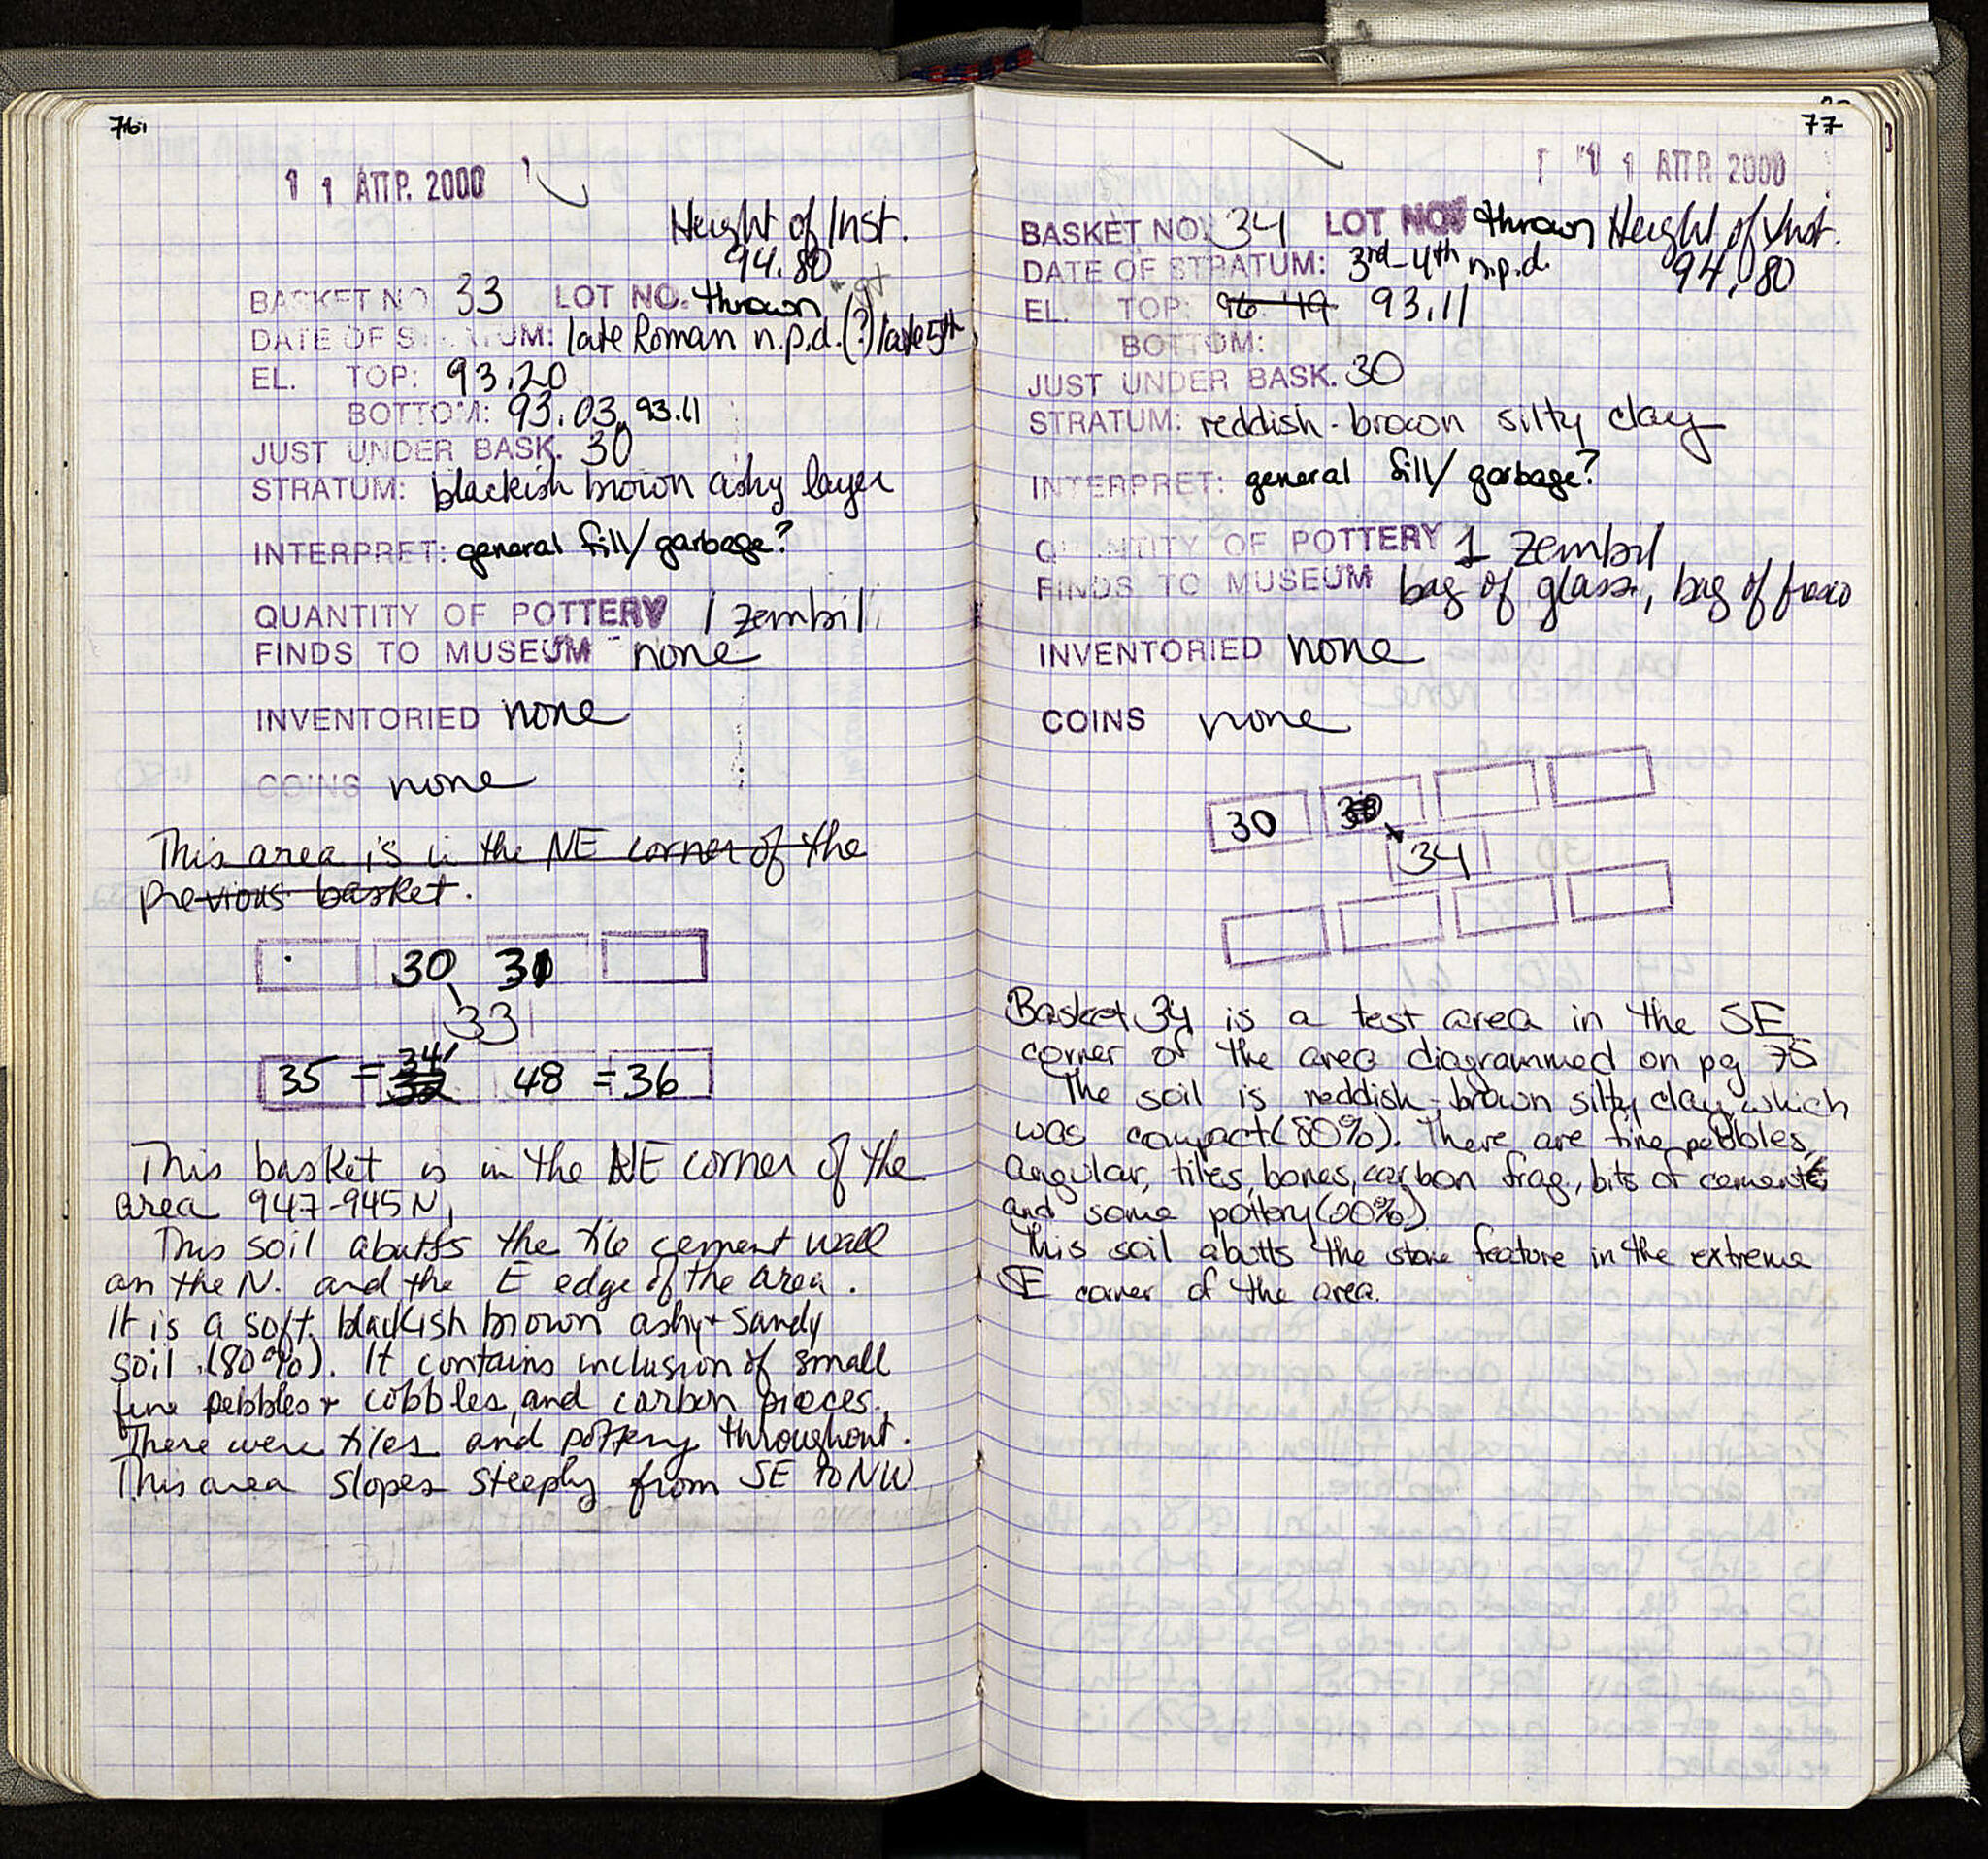 76
1 1 ΑΠΡ. 2000
Height of Inst.
94.80
BASKET NO. 33 LOT NO. thrown
DATE OF STRATUM: late Roman n.p.d.(?) late 5th
EL. TOP: 93.20
BOTTOM: 93.03, 93.11
JUST UNDER BASK. 30
STRATUM: blackish brown ashy layer
INTERPRET: general fill/garbage?
QUANTITY OF POTTERY 1 zembil
FINDS TO MUSEUM none
INVENTORIED none
COINS none
This area is in the NE corner of the
previous basket.
30 31
33
35 = 34 48 = 36
This basket is in the NE corner of the
area 947-945 N,
This soil abutts the tile cement wall
on the N. and the E edge of the area.
It is a soft, blackish brown ashy + sandy
soil (80%). It contains inclusion of small
fine pebbles + cobbles, and carbon pieces.
There were tiles and pottery throughout.
This area slopes steeply from SE to NW
77
1 1 ΑΠΡ. 2000
BASKET NO. 34 LOT NO. thrown Height of Inst.
DATE OF STRATUM: 3rd-4th n.p.d. 94.80
EL. TOP: 96.49 93.11
BOTTOM:
JUST UNDER BASK. 30
STRATUM: reddish-brown silty clay
INTERPRET: general fill/garbage?
QUANTITY OF POTTERY 1 zembil
FINDS TO MUSEUM bag of glass, bag of
INVENTORIED none
COINS none
30
34
Basket 34 is a test area in the SE
corner of the area diagrammed on pg 75
The soil is reddish-brown silty clay which
was compact (80%). There are fine pebbles,
angular, tiles, bones, carbon frag., bits of cement
and some pottery (20%)
This soil abutts the stone feature in the extreme
SE corner of the area.